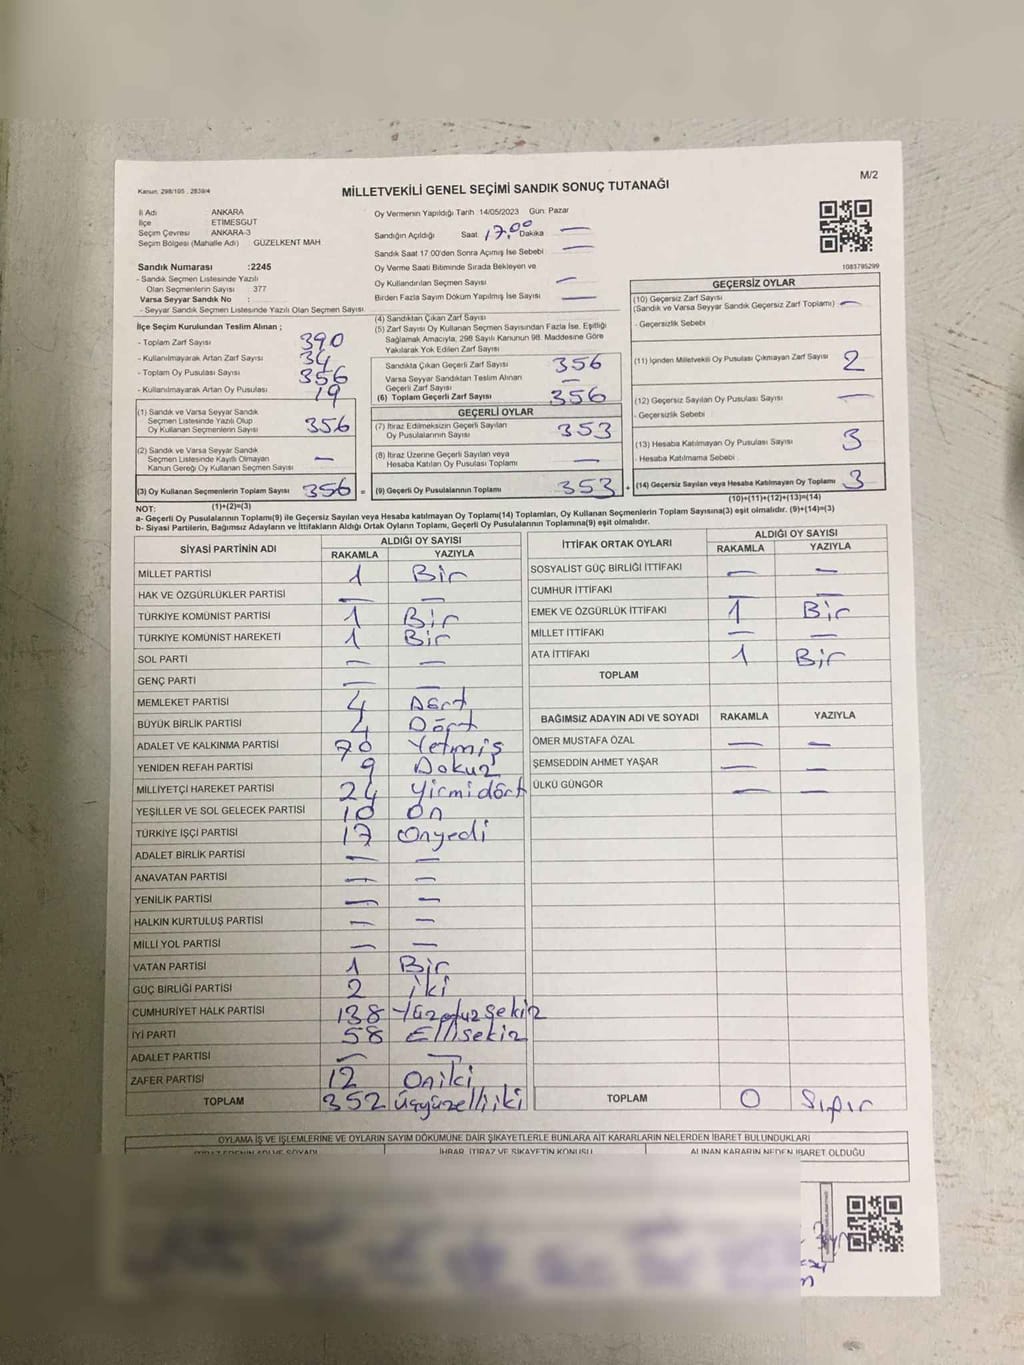 M/2
Kanun. 298/105 . 2839/4
MİLLETVEKİLİ GENEL SEÇİMİ SANDIK SONUÇ TUTANAĞI
İl Adı ANKARA
İlçe ETİMESGUT
Seçim Çevresi ANKARA-3
Seçim Bölgesi (Mahalle Adı) GÜZELKENT MAH
Sandık Numarası :2245
- Sandık Seçmen Listesinde Yazılı
Olan Seçmenlerin Sayısı 377
Varsa Seyyar Sandık No :
- Seyyar Sandık Seçmen Listesinde Yazılı Olan Seçmen Sayısı
Oy Vermenin Yapıldığı Tarih 14/05/2023 Gün: Pazar
Sandığın Açıldığı Saat 17.00 Dakika —
Sandık Saat 17.00'den Sonra Açımış İse Sebebi —
Oy Verme Saati Bitiminde Sırada Bekleyen ve
Oy Kullandırılan Seçmen Sayısı —
Birden Fazla Sayım Döküm Yapılmış İse Sayısı —
1083795299
İlçe Seçim Kurulundan Teslim Alınan ;
- Toplam Zarf Sayısı 390
- Kullanılmayarak Artan Zarf Sayısı 34
- Toplam Oy Pusulası Sayısı 356
- Kullanılmayarak Artan Oy Pusulası 19
(1) Sandık ve Varsa Seyyar Sandık
Seçmen Listesinde Yazılı Olup
Oy Kullanan Seçmenlerin Sayısı 356
(2) Sandık ve Varsa Seyyar Sandık
Seçmen Listesinde Kayıtlı Olmayan
Kanun Gereği Oy Kullanan Seçmen Sayısı —
(3) Oy Kullanan Seçmenlerin Toplam Sayısı 356 =
(1)+(2)=(3)
(4) Sandıktan Çıkan Zarf Sayısı
(5) Zarf Sayısı Oy Kullanan Seçmen Sayısından Fazla İse, Eşitliği
Sağlamak Amacıyla, 298 Sayılı Kanunun 98. Maddesine Göre
Yakılarak Yok Edilen Zarf Sayısı
Sandıkta Çıkan Geçerli Zarf Sayısı 356
Varsa Seyyar Sandıktan Teslim Alınan
Geçerli Zarf Sayısı —
(6) Toplam Geçerli Zarf Sayısı 356
GEÇERLİ OYLAR
(7) İtiraz Edilmeksizin Geçerli Sayılan
Oy Pusulalarının Sayısı 353
(8) İtiraz Üzerine Geçerli Sayılan veya
Hesaba Katılan Oy Pusulası Toplamı —
(9) Geçerli Oy Pusulalarının Toplamı 353 +
GEÇERSİZ OYLAR
(10) Geçersiz Zarf Sayısı
(Sandık ve Varsa Seyyar Sandık Geçersiz Zarf Toplamı) —
- Geçersizlik Sebebi
(11) İçinden Milletvekili Oy Pusulası Çıkmayan Zarf Sayısı 2
(12) Geçersiz Sayılan Oy Pusulası Sayısı —
- Geçersizlik Sebebi
(13) Hesaba Katılmayan Oy Pusulası Sayısı 3
- Hesaba Katılmama Sebebi
(14) Geçersiz Sayılan veya Hesaba Katılmayan Oy Toplamı 3
(10)+(11)+(12)+(13)=(14)
NOT:
a- Geçerli Oy Pusulalarının Toplamı(9) ile Geçersiz Sayılan veya Hesaba katılmayan Oy Toplamı(14) Toplamları, Oy Kullanan Seçmenlerin Toplam Sayısına(3) eşit olmalıdır. (9)+(14)=(3)
b- Siyasi Partilerin, Bağımsız Adayların ve İttifakların Aldığı Ortak Oyların Toplamı, Geçerli Oy Pusulalarının Toplamına(9) eşit olmalıdır.
SİYASİ PARTİNİN ADI ALDIĞI OY SAYISI
RAKAMLA YAZIYLA
MİLLET PARTİSİ 1 Bir
HAK VE ÖZGÜRLÜKLER PARTİSİ — —
TÜRKİYE KOMÜNİST PARTİSİ 1 Bir
TÜRKİYE KOMÜNİST HAREKETİ 1 Bir
SOL PARTİ — —
GENÇ PARTİ — —
MEMLEKET PARTİSİ 4 Dört
BÜYÜK BİRLİK PARTİSİ 4 Dört
ADALET VE KALKINMA PARTİSİ 70 Yetmiş
YENİDEN REFAH PARTİSİ 9 Dokuz
MİLLİYETÇİ HAREKET PARTİSİ 24 Yirmidört
YEŞİLLER VE SOL GELECEK PARTİSİ 10 On
TÜRKİYE İŞÇİ PARTİSİ 17 Onyedi
ADALET BİRLİK PARTİSİ — —
ANAVATAN PARTİSİ — —
YENİLİK PARTİSİ — —
HALKIN KURTULUŞ PARTİSİ — —
MİLLİ YOL PARTİSİ — —
VATAN PARTİSİ 1 Bir
GÜÇ BİRLİĞİ PARTİSİ 2 iki
CUMHURİYET HALK PARTİSİ 138 Yüzotuzsekiz
İYİ PARTİ 58 Ellisekiz
ADALET PARTİSİ — —
ZAFER PARTİSİ 12 Oniki
TOPLAM 352 üçyüzelliiki
İTTİFAK ORTAK OYLARI ALDIĞI OY SAYISI
RAKAMLA YAZIYLA
SOSYALİST GÜÇ BİRLİĞİ İTTİFAKI — —
CUMHUR İTTİFAKI — —
EMEK VE ÖZGÜRLÜK İTTİFAKI 1 Bir
MİLLET İTTİFAKI — —
ATA İTTİFAKI 1 Bir
TOPLAM
BAĞIMSIZ ADAYIN ADI VE SOYADI RAKAMLA YAZIYLA
ÖMER MUSTAFA ÖZAL — —
ŞEMSEDDİN AHMET YAŞAR — —
ÜLKÜ GÜNGÖR — —
TOPLAM 0 Sıfır
OYLAMA İŞ VE İŞLEMLERİNE VE OYLARIN SAYIM DÖKÜMÜNE DAİR ŞİKAYETLERLE BUNLARA AİT KARARLARIN NELERDEN İBARET BULUNDUKLARI
İHBAR, İTİRAZ VE ŞİKAYETİN KONUSU ALINAN KARARIN NEDEN İBARET OLDUĞU